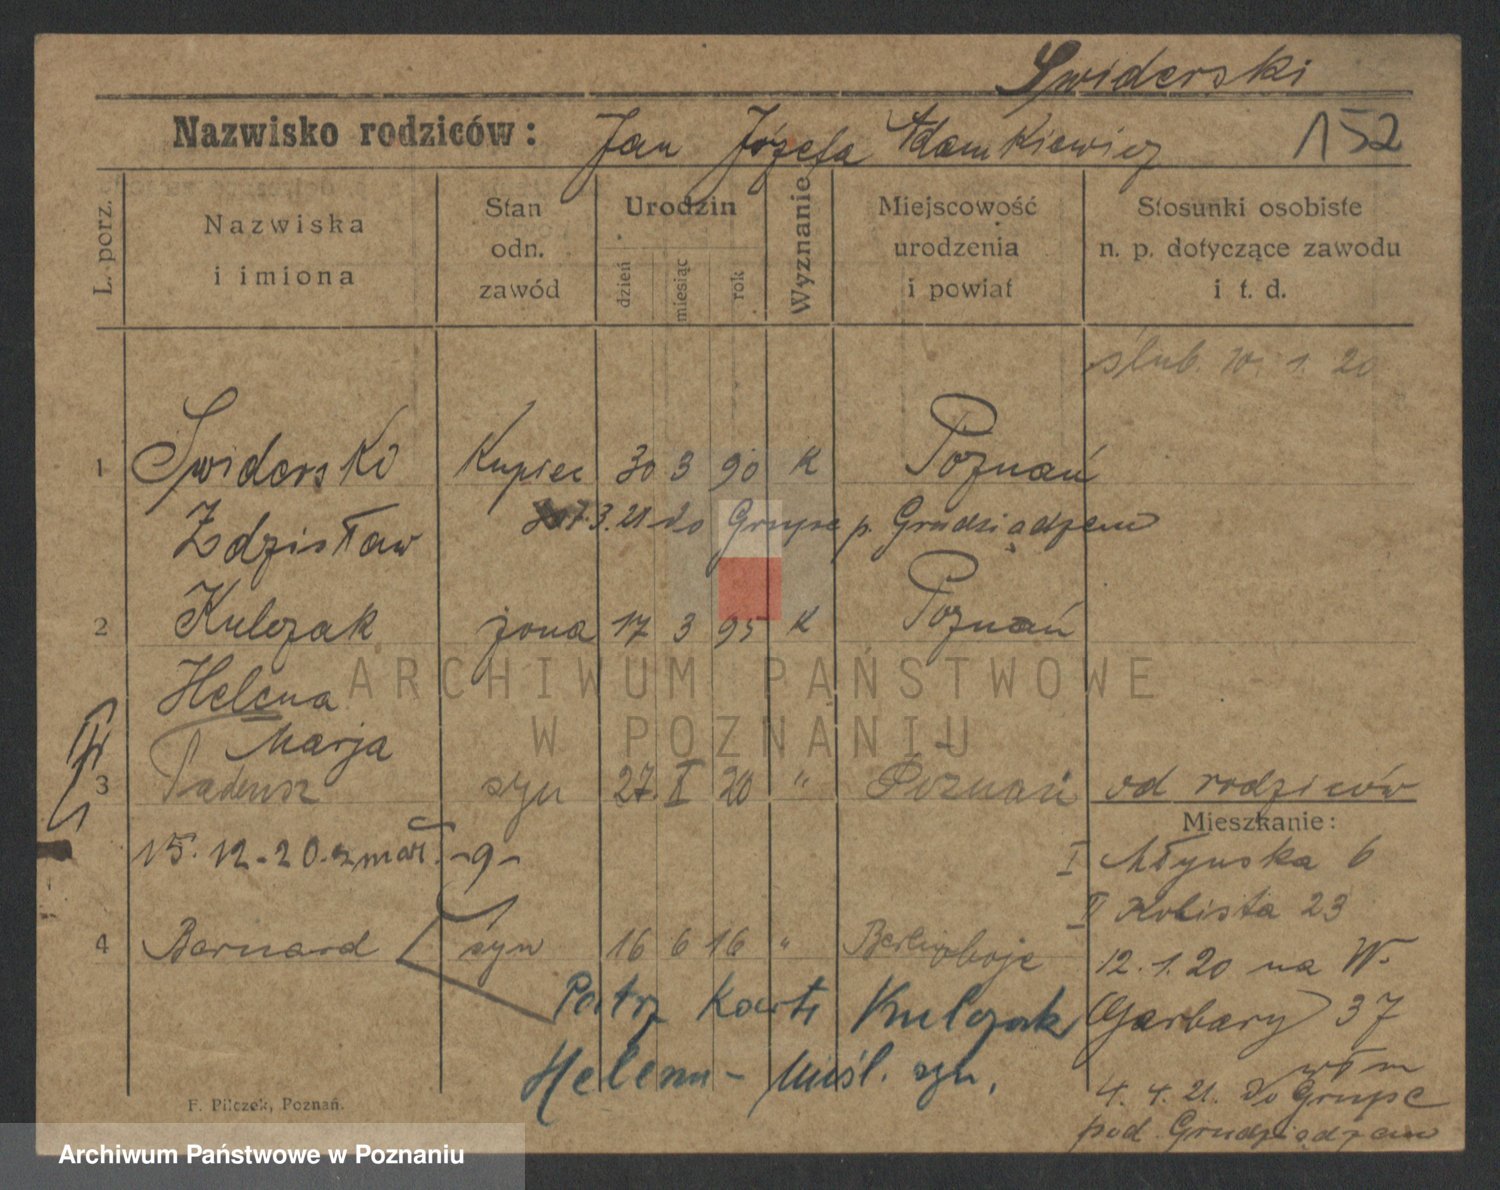 Swiderski
Nazwisko rodziców: Jan Józefa Adamkiewicz 152
L. porz. Nazwiska i imiona Stan odn. zawód Urodzin dzień miesiąc rok Wyznanie Miejscowość urodzenia i powiat Stosunki osobiste n. p. dotyczące zawodu i t. d.
ślub. 10. 1. 20
1 Swiderski Kupiec 30 3 90 K Poznań
Zdzisław 7.3.21 do Grupse p. Grudziądzem
2 Kulczak żona 17 3 95 K Poznań
Helena
Marja
3 Tadeusz syn 27. X 20 " Poznań od rodziców
Mieszkanie:
15. 12 - 20. zmarł. - 9 - I Młyńska 6
II 23
4 Bernard syn 16 6 16 " Berlin
12. 1. 20 na W.
Patrz Karta Kulczak (Garbary) 37
Helena - syn.
4. 4. 21. do Grupse
pod Grudziądzem
F. Pilczek, Poznań.
ARCHIWUM PAŃSTWOWE
W POZNANIU
Archiwum Państwowe w Poznaniu